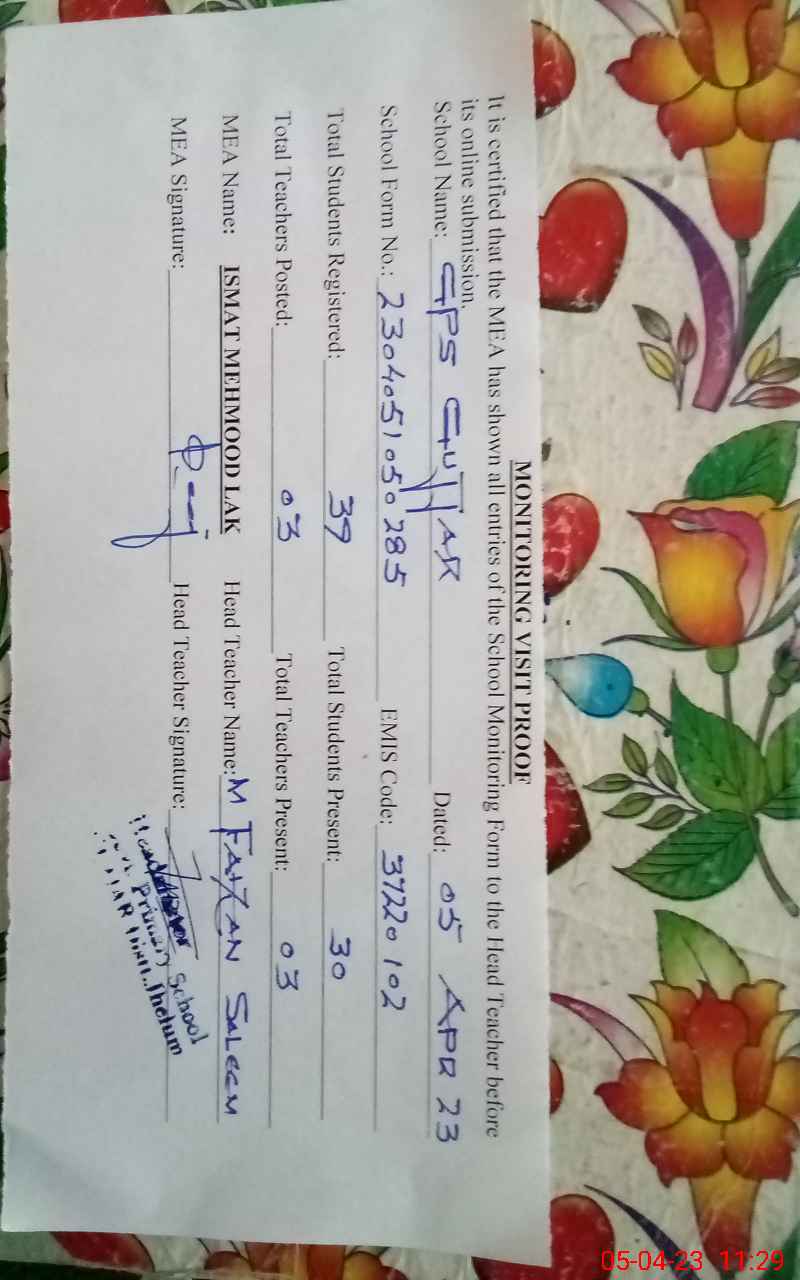 MONITORING VISIT PROOF
It is certified that the MEA has shown all entries of the School Monitoring Form to the Head Teacher before
its online submission.
School Name: GPS GUJJAR Dated: 05 APR 23
School Form No.: 2304051050285 EMIS Code: 37220102
Total Students Registered: 39 Total Students Present: 30
Total Teachers Posted: 03 Total Teachers Present: 03
MEA Name: ISMAT MEHMOOD LAK Head Teacher Name: M FAIZAN SALEEM
MEA Signature: Head Teacher Signature:
Primary School
Jhelum
05-04-23 11:29